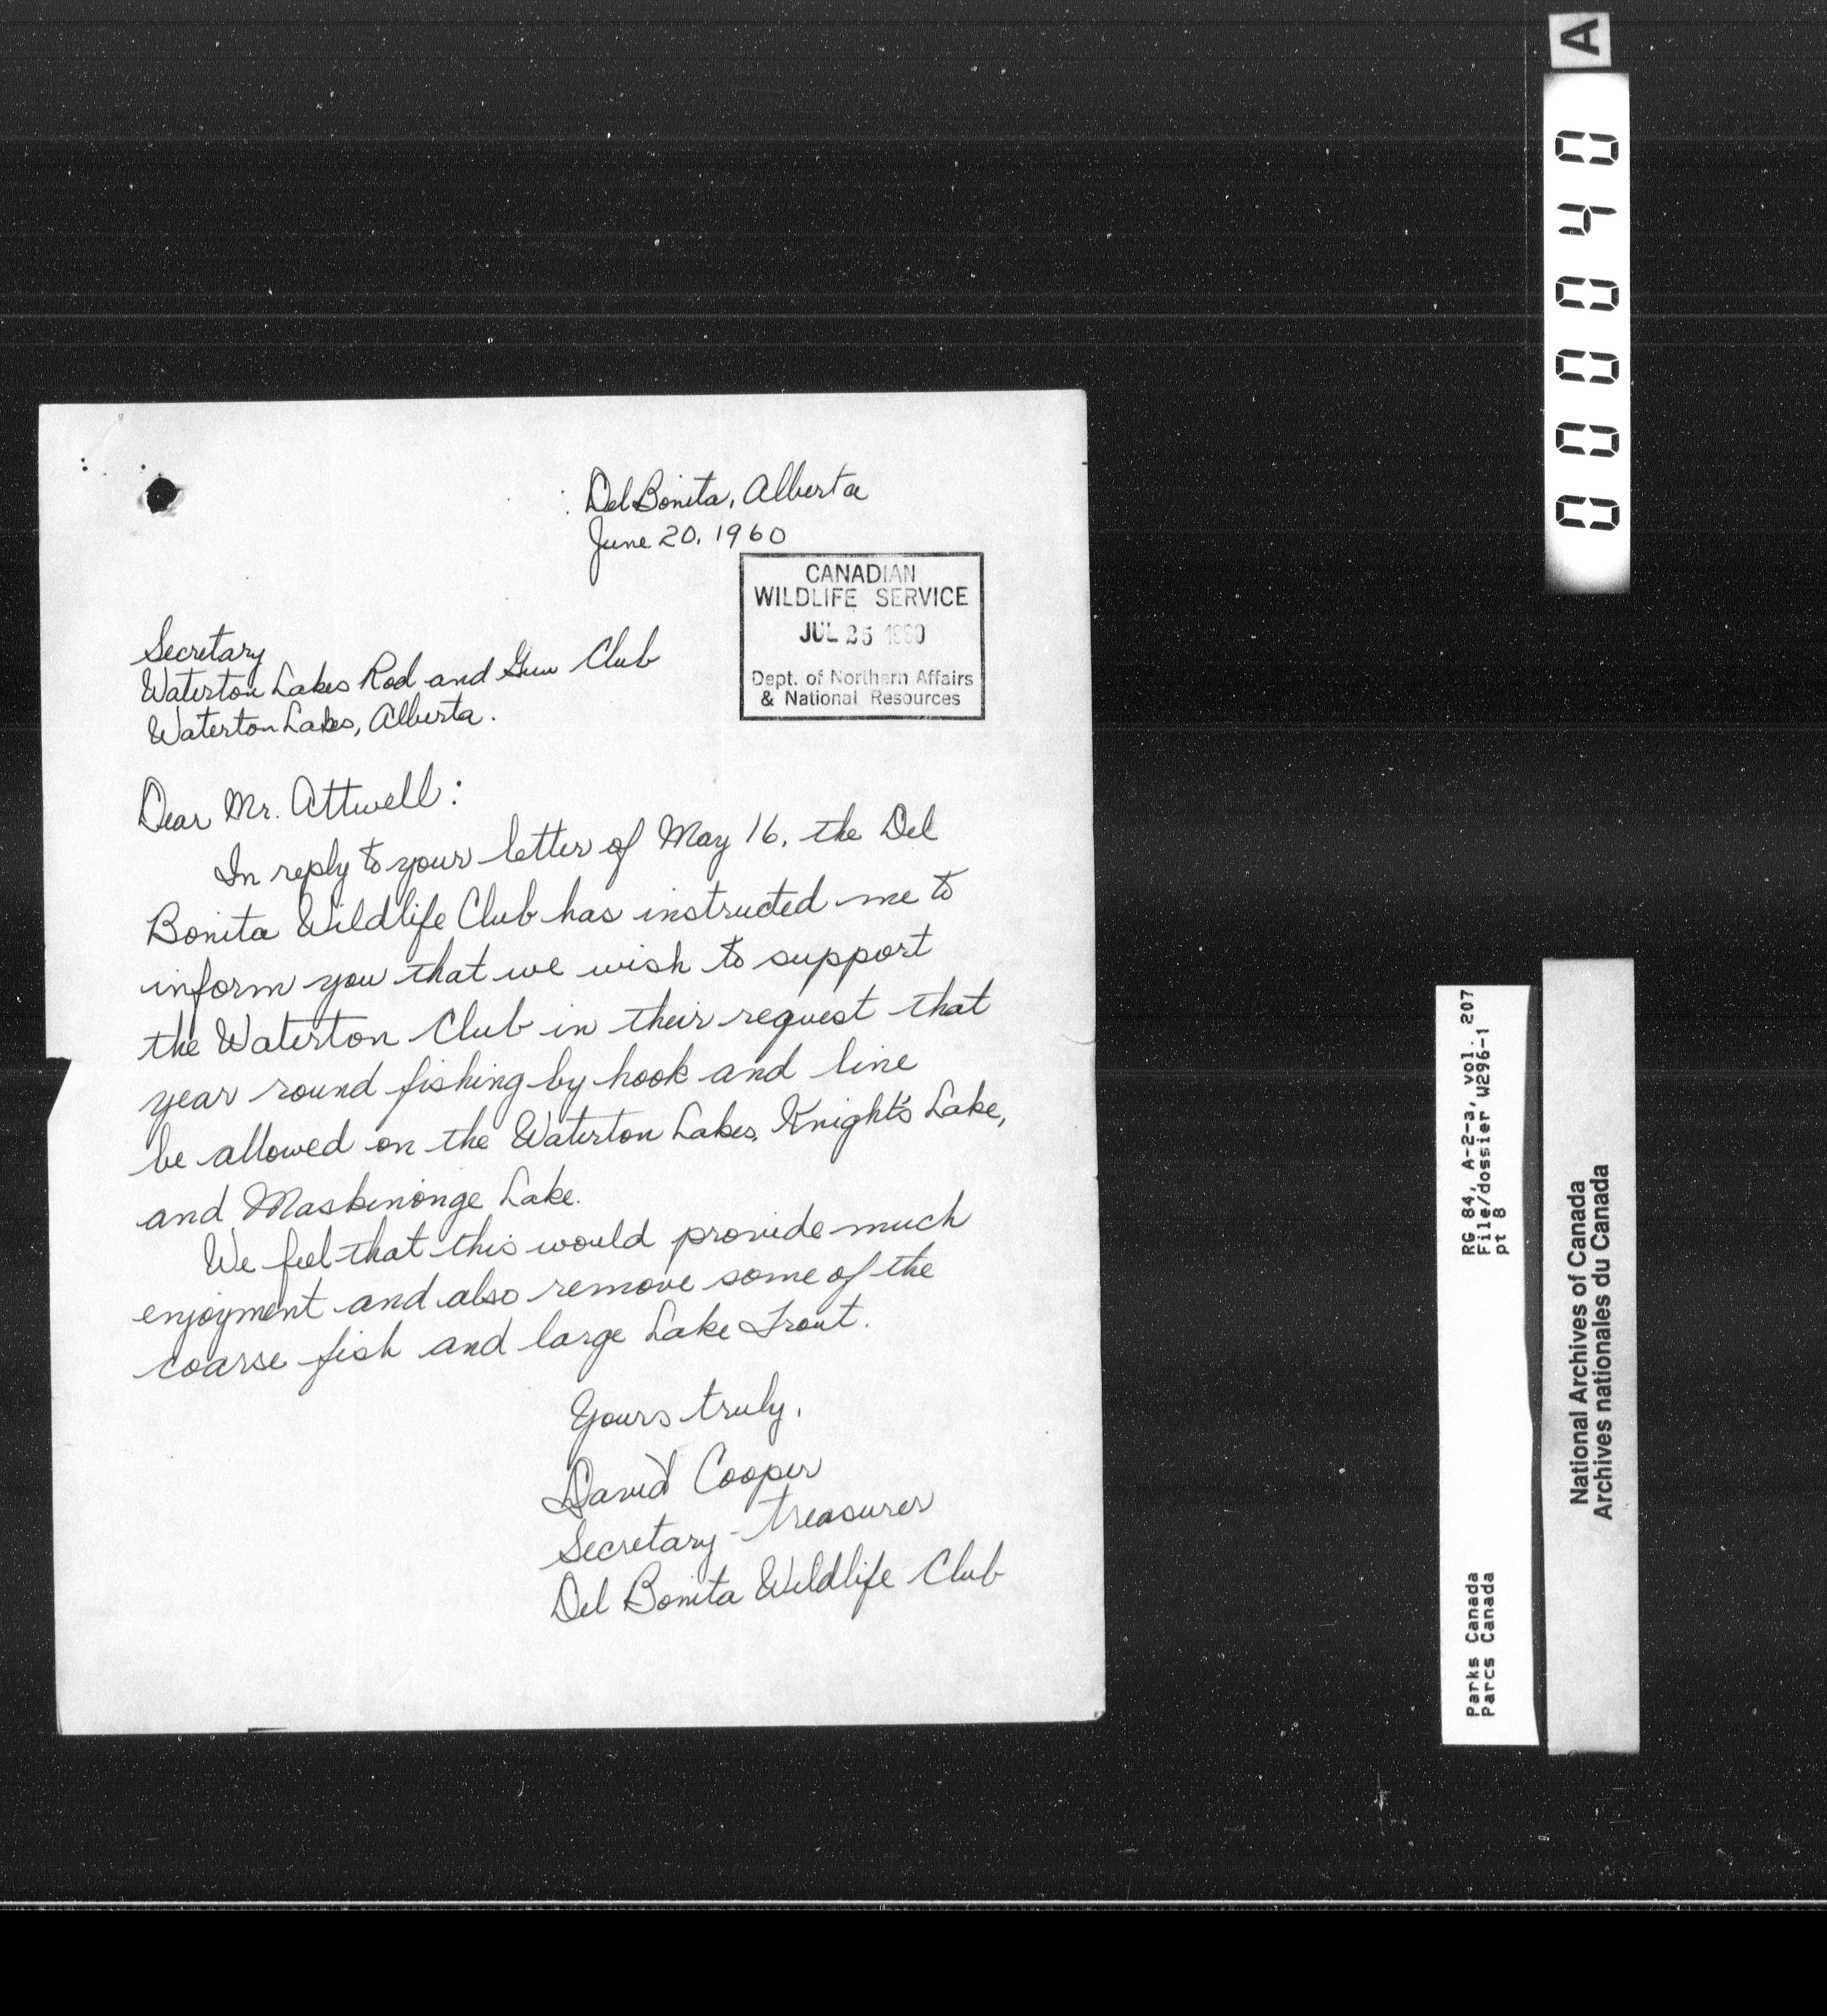 Del Bonita, Alberta
June 20, 1960
CANADIAN
WILDLIFE SERVICE
JUL 25 1960
Dept. of Northern Affairs
& National Resources
Secretary
Waterton Lakes Rod and Gun Club
Waterton Lakes, Alberta.
Dear Mr. Attwell:
In reply to your letter of May 16, the Del
Bonita Wildlife Club has instructed me to
inform you that we wish to support
the Waterton Club in their request that
year round fishing by hook and line
be allowed on the Waterton Lakes, Knight's Lake,
and Maskinonge Lake.
We feel that this would provide much
enjoyment and also remove some of the
coarse fish and large Lake Trout.
Yours truly,
David Cooper
Secretary-treasurer
Del Bonita Wildlife Club
A
000040
RG 84, A-2-3, vol. 207
File/dossier W296-1
pt 8
Parks Canada
Parcs Canada
National Archives of Canada
Archives nationales du Canada